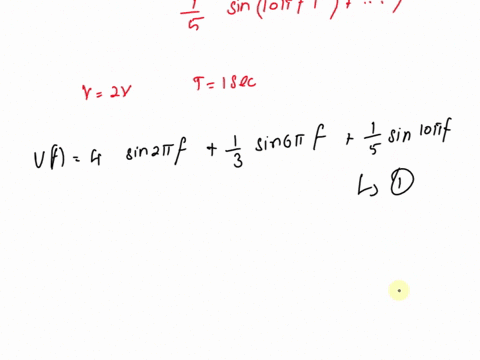 1/5 sin(10πft) + ...)
V = 2V T = 1 sec
V(f) = 4 sin2πf + 1/3 sin6πf + 1/5 sin10πf
↳ ①